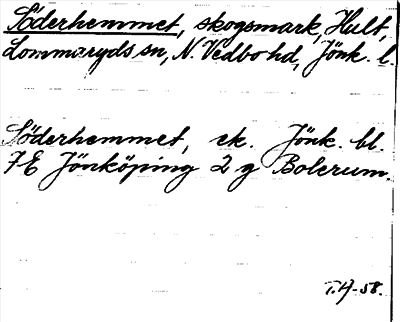 Söderhemmet, skogsmark, Hult,
Lommaryds sn, N. Vedbo hd, Jönk. l.
Söderhemmet, ek. Jönk. bl.
7E Jönköping 2 g Bolerum.
T.H-58.